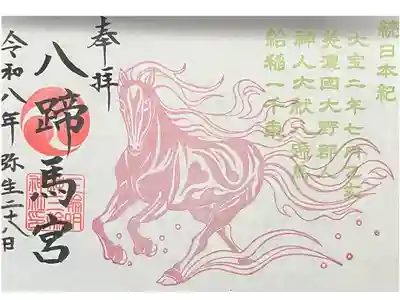 続日本紀
大宝二年七月乙亥
美濃國大野郡人
神人大献八蹄馬
給稲一千束
奉拝
八蹄馬宮
令和八年 弥生二十八日